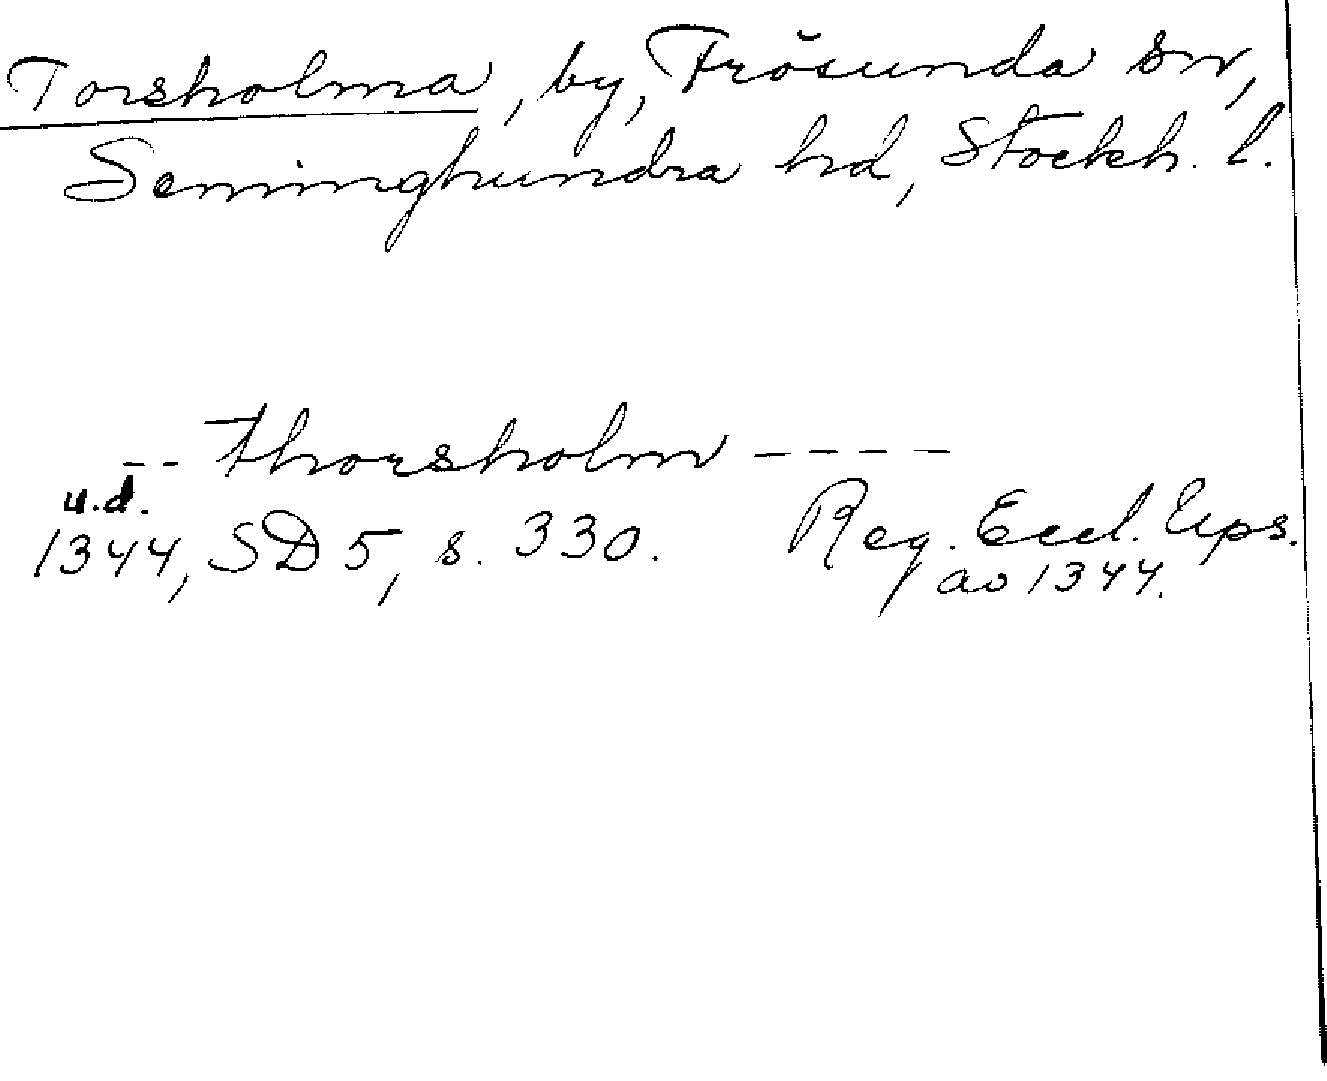 Torsholma, by, Frösunda sn,
Seminghundra hd, Stockh. l.
-- Thorsholm ----
u.d.
1344, SD 5, s. 330. Reg. Eccl. Ups.
ao 1344.